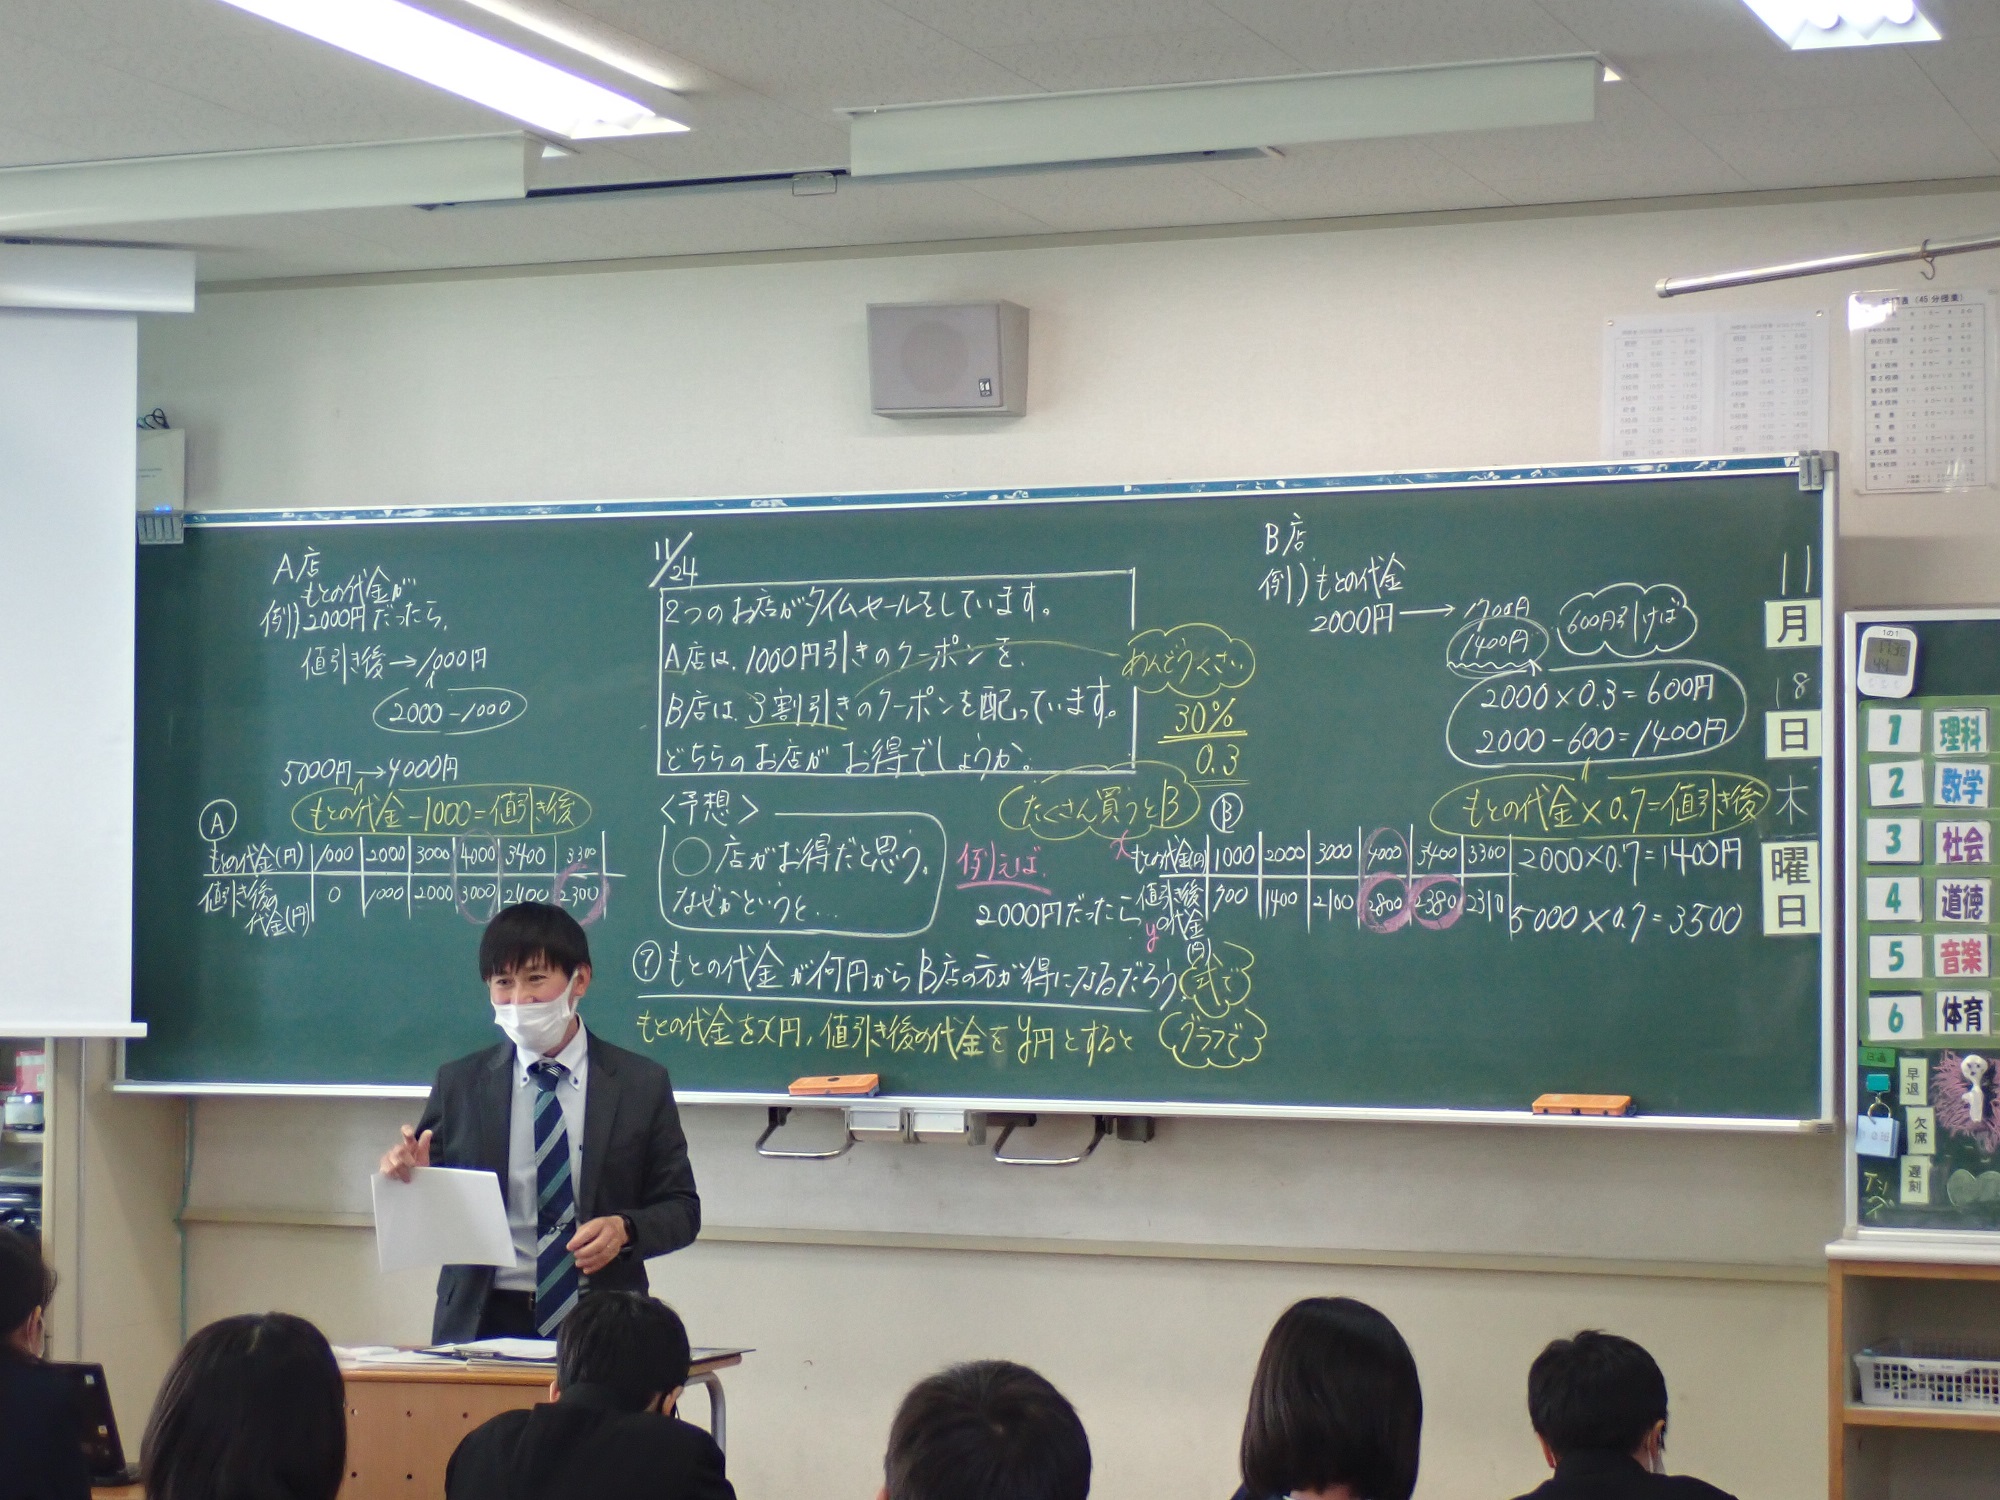 A店
もとの代金が
例)2000円だったら、
値引き後→1000円
2000-1000
5000円→4000円
もとの代金-1000=値引き後
A
もとの代金(円) 1000 2000 3000 4000 3400 3300
値引き後の代金(円) 0 1000 2000 3000 2400 2300
11/24
2つのお店がタイムセールをしています。
A店は、1000円引きのクーポンを、
B店は、3割引きのクーポンを配っています。
どちらのお店がお得でしょうか。
めんどうくさい
30%
0.3
<予想>
○店がお得だと思う。
なぜかというと…
たくさん買うとB
例えば、
2000円だったら
?もとの代金が何円からB店の方が得になるだろう。
式で
もとの代金をx円,値引き後の代金をy円とすると
グラフで
B店
例)もとの代金
2000円→1700円
1400円
600円引けば
2000×0.3=600円
2000-600=1400円
もとの代金×0.7=値引き後
B
x もとの代金(円) 1000 2000 3000 4000 3400 3300
y 値引き後の代金(円) 700 1400 2100 2800 2380 2310
2000×0.7=1400円
5000×0.7=3500
11
月
18
日
木
曜
日
1 理科
2 数学
3 社会
4 道徳
5 音楽
6 体育
早退
欠席
遅刻
(45分授業)